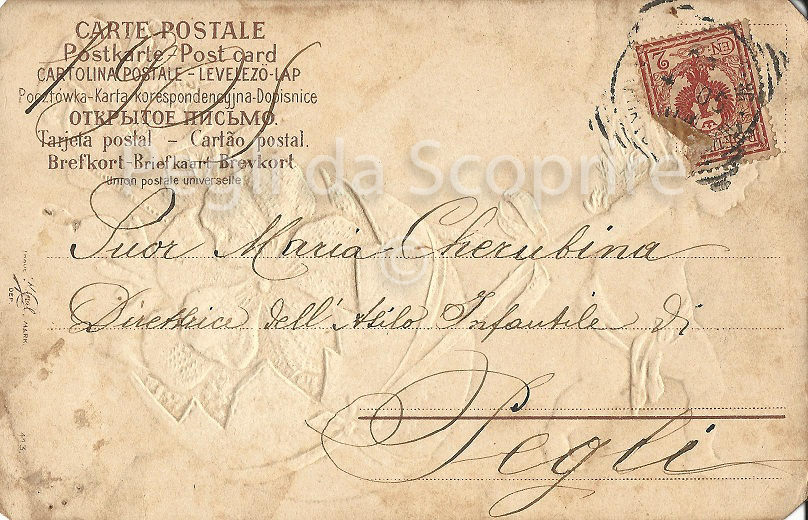 CARTE POSTALE
Postkarte-Post card
CARTOLINA POSTALE-LEVELEZÖ-LAP
Pocztówka-Karta korespondencyjna-Dopisnice
ОТКРЫТОЕ ПИСЬМО.
Tarjeta postal - Cartão postal.
Brefkort-Briefkaart-Brevkort
Union postale universelle
Pegli da Scoprire
©
Suor Maria Cherubina
Direttrice dell' Asilo Infantile di
Pegli